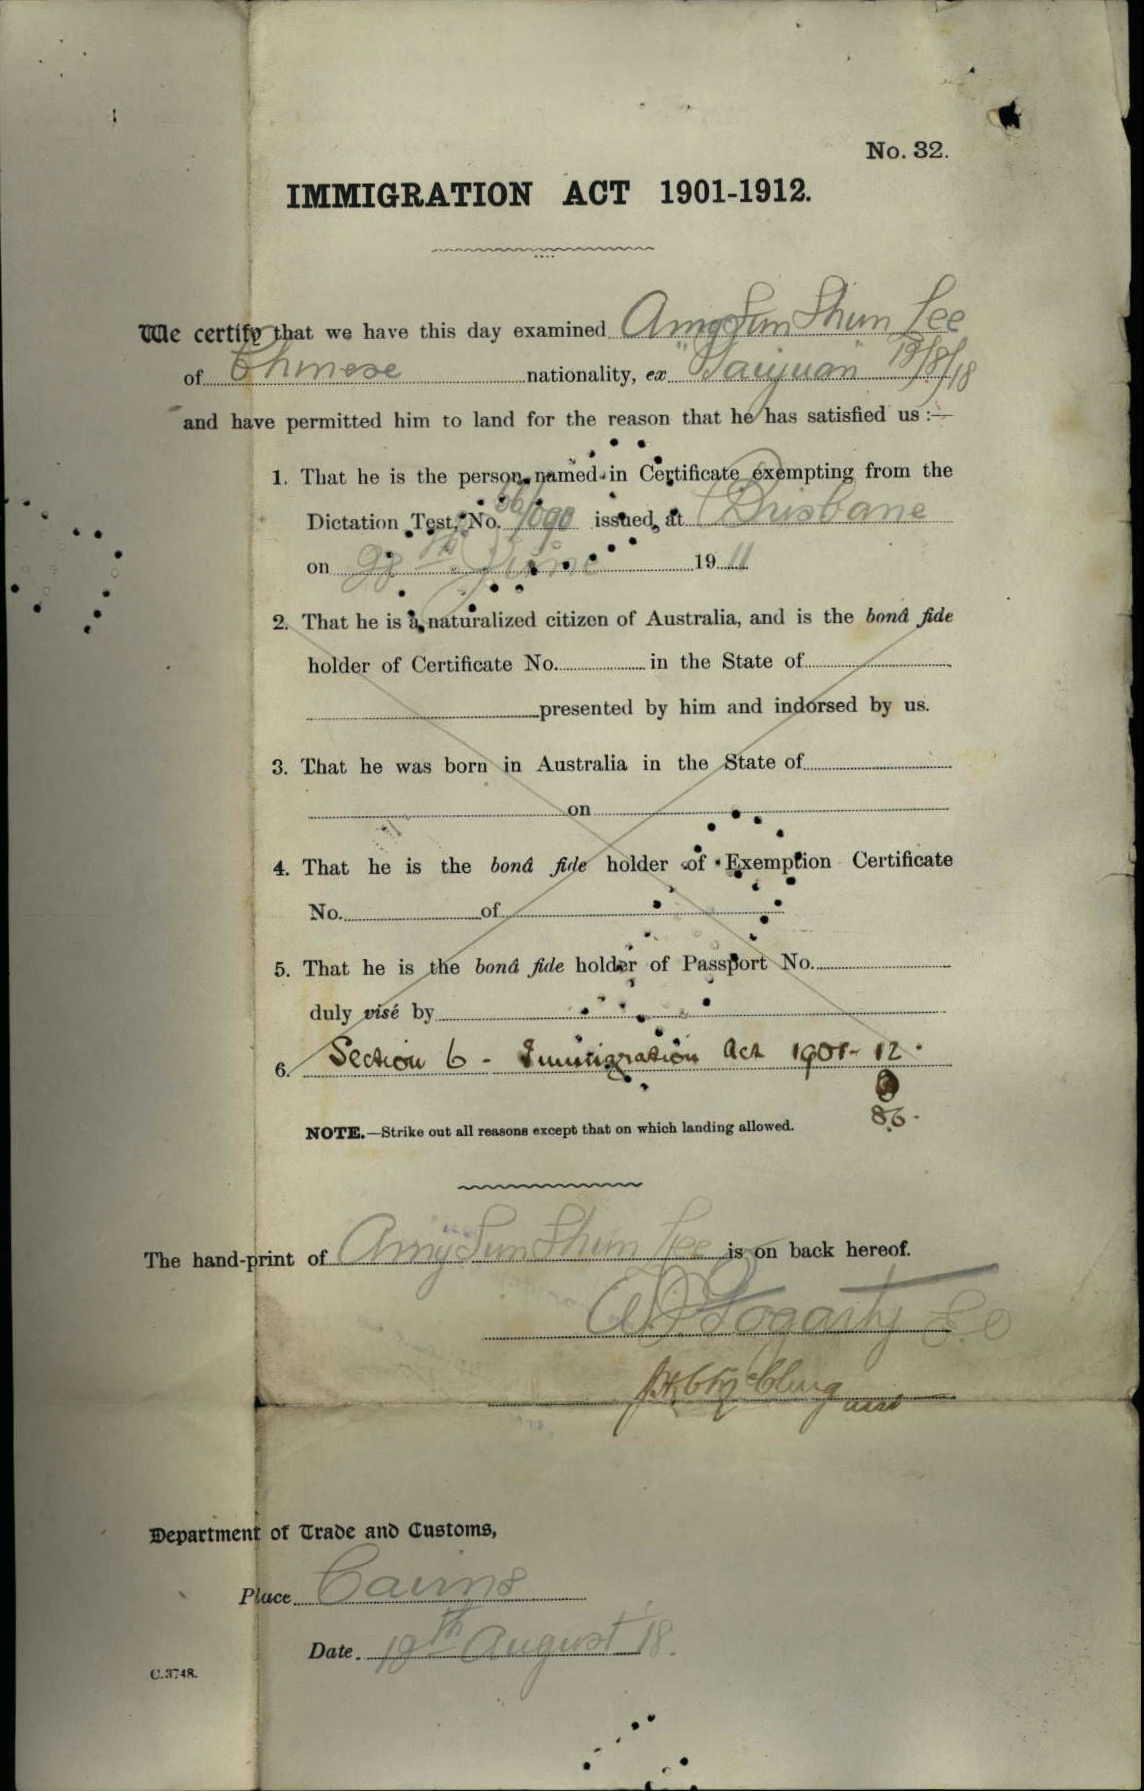 No. 32.
IMMIGRATION ACT 1901-1912.
We certify that we have this day examined Amy Sun Shun Lee
of Chinese nationality, ex "Taiyuan" 13/8/18
and have permitted him to land for the reason that he has satisfied us :—
1. That he is the person named in Certificate exempting from the
Dictation Test, No. issued at Brisbane
on 28th June 1911
2. That he is a naturalized citizen of Australia, and is the bonâ fide
holder of Certificate No. in the State of
presented by him and indorsed by us.
3. That he was born in Australia in the State of
on
4. That he is the bonâ fide holder of Exemption Certificate
No. of
5. That he is the bonâ fide holder of Passport No.
duly visé by
6. Section 6 - Immigration Act 1901-12.
NOTE.—Strike out all reasons except that on which landing allowed.
The hand-print of Amy Sun Shun Lee is on back hereof.
Fogarty
Department of Trade and Customs,
Place Cairns
Date. August 18.
C.3748.